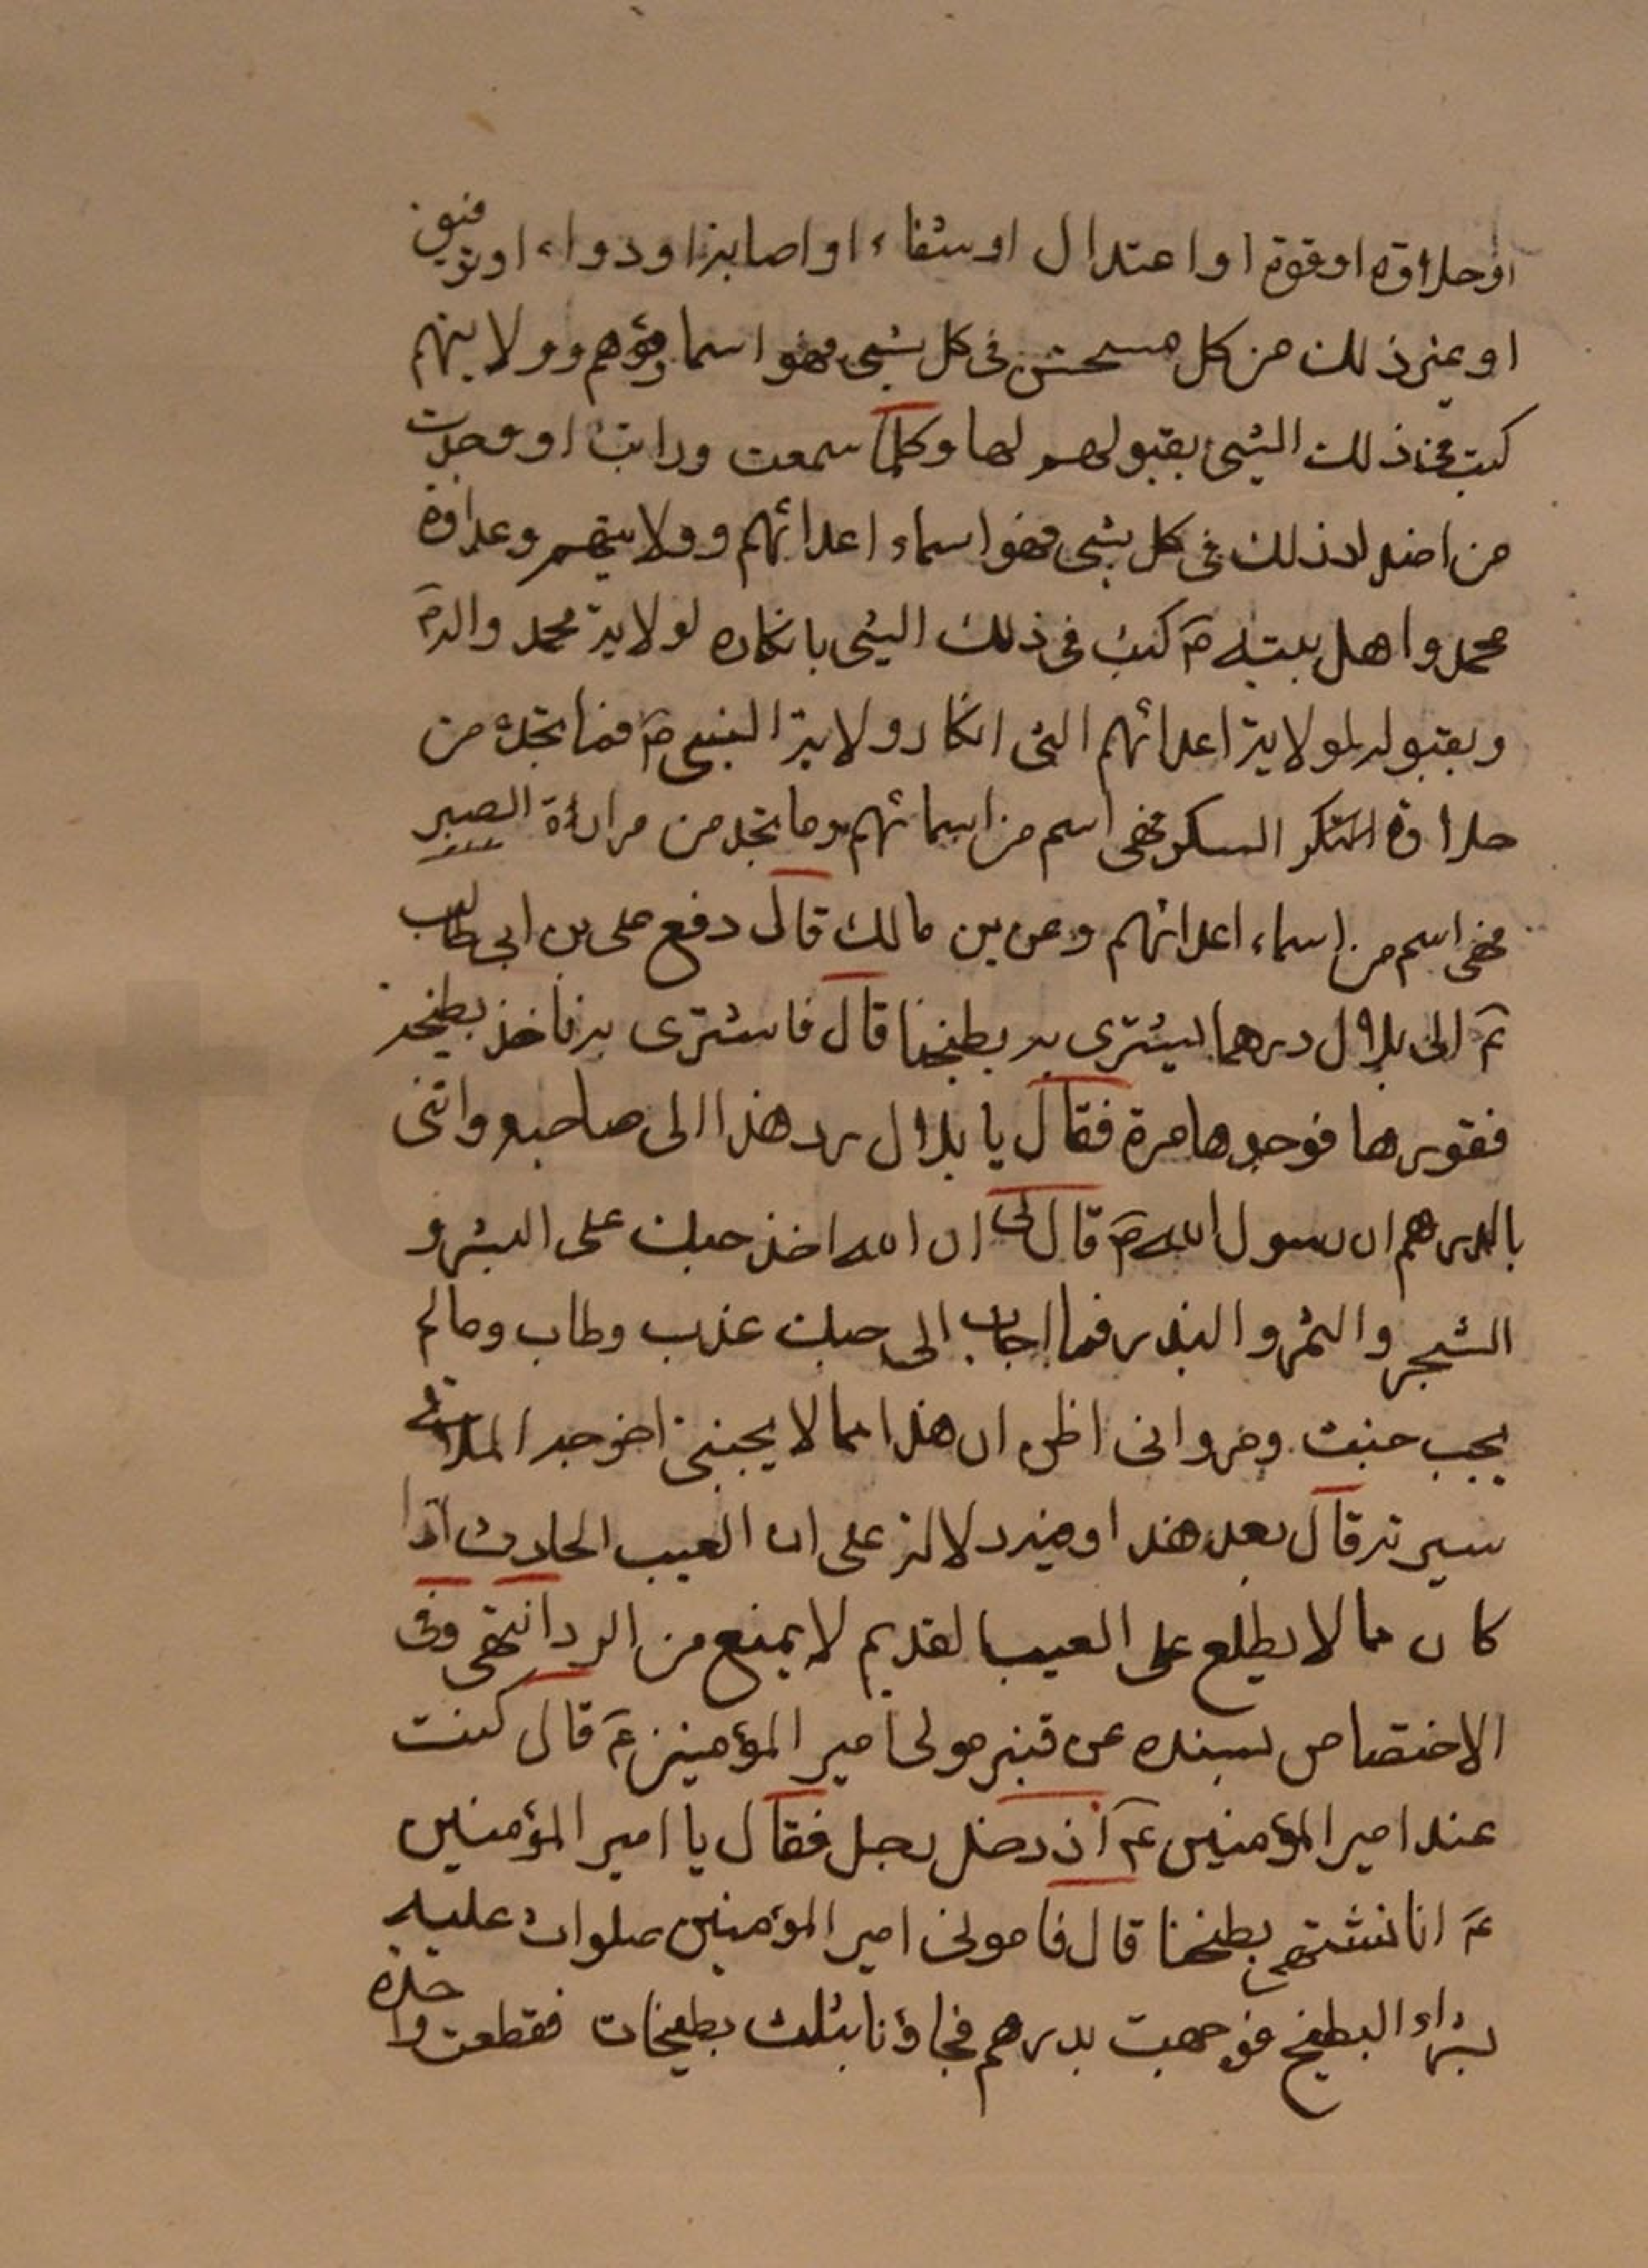 او حلاوة او قوة او اعتدال او شفاء او اصابة او دواء او توفيق
او غير ذلك من كل مستحسن فى كل شىء فهو اسماؤهم وولايتهم
كتبت فى ذلك الشىء بقبولهم لها وكلما سمعت ورايت او وجدت
من اضداد ذلك فى كل شىء فهو اسماء اعدائهم وولايتهم وعداوة
محمد واهل بيته ص كتبت فى ذلك الشىء بانكاره لولاية محمد واله ص
وبقبوله لولاية اعدائهم التى انكار ولاية النبى ص فما تجده من
حلاوة السكر فهى اسم من اسمائهم وما تجد من مرارة الصبر
فهى اسم من اسماء اعدائهم وعن بن مالك قال دفع على بن ابى طالب
ع الى بلال درهما ليشترى به بطيخا قال فاشترى به فاخذ بطيخة
فقورها فوجدها مرة فقال يا بلال رد هذا الى صاحبه واتنى
بالدرهم ان رسول الله ص قال لى ان الله اخذ حبك على البشر و
الشجر والثمر والبذر فما اجاب الى حبك عذب وطاب وما لم
يجب خبث ومر وانى اظن ان هذا مما لا يحبنى اخرجه الملا فى
سيرته قال بعد هذا وفيه دلالة على ان العيب الحادث اذا
كان مما لا يطلع على العيب القديم لا يمنع من الرد انتهى وفى
الاختصاص بسنده عن قنبر مولى امير المؤمنين ع قال كنت
عند امير المؤمنين ع اذ دخل رجل فقال يا امير المؤمنين
ع انا نشتهى بطيخا قال فامرنى امير المؤمنين صلوات عليه
بشراء البطيخ فوجهت بدرهم فجاؤنا بثلث بطيخات فقطعت واحدة